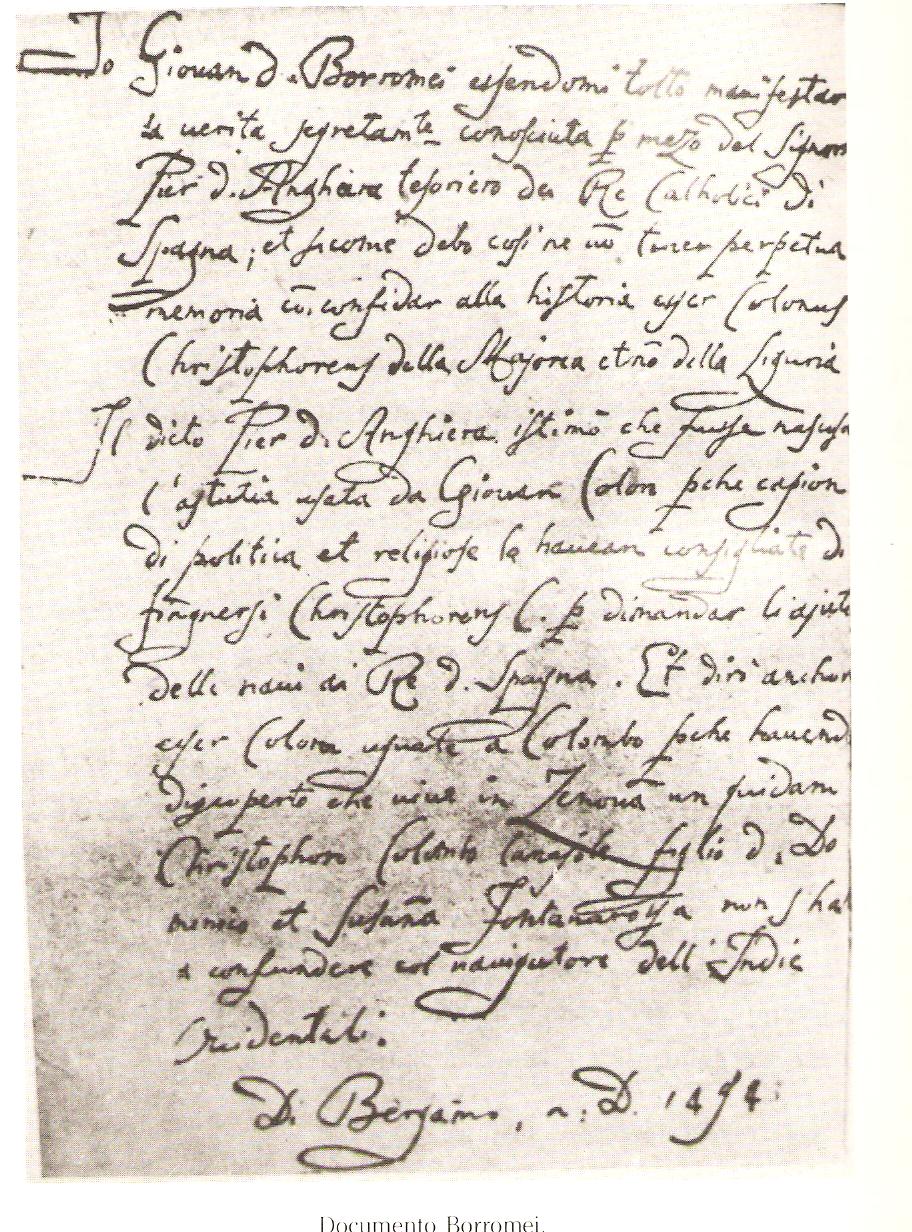 Io Giovan d. Borromei essendomi tolto manifestar
la uerita segretamte conosciuta p mezo del Signor
Pier d. Anghiera tesoriero dei Re Catholici di
Spagna ; et sicome debo cosi ne uo tucer perpetua
memoria confidar alla historia esser Colonus
Christophorens della Majorca et nō della Liguria
Il dicto Pier d. Anghiera istimō che fusse nascosa
l'astutia usata da Giouan Colon pche cagion
di politica et religiose lo hauean consigliato di
fingnersi Christophorens C. p dimandar li ajuto
delle naui ai Re d. Spagna . Et dirō anchor
esser Colom uguale a Colombo pche hauend
discoperto che uiue in Zenoua un quidam
Christophoro Colombo Canajole figlio d. Do
menico et Susaña Fontanarossa non s ha
a confundere col nauigatore dell' Indie
Ocidentali.
Di Bergamo, a: D. 1494.
Documento Borromei.